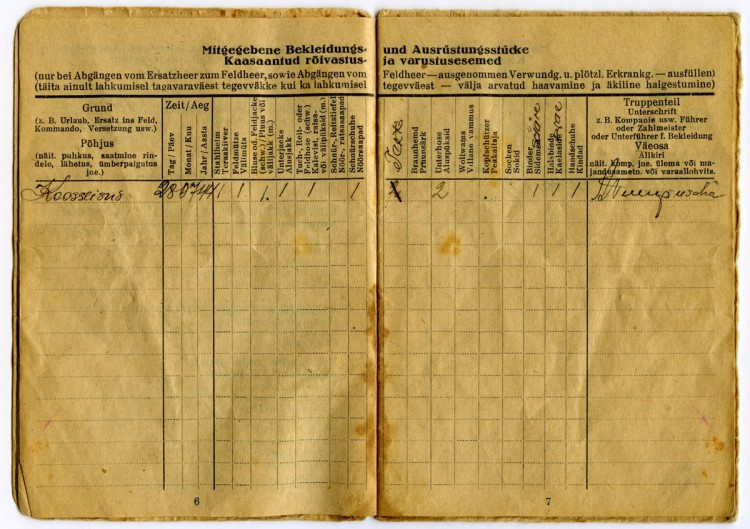 Mitgegebene Bekleidungs-
Kaasaantud rõivastus-
(nur bei Abgängen vom Ersatzheer zum Feldheer, sowie Abgängen vom
(täita ainult lahkumisel tagavaraväest tegevväkke kui ka lahkumisel
Grund
(z. B. Urlaub, Ersatz ins Feld,
Kommando, Versetzung usw.)
Põhjus
(näit. puhkus, saatmine rin-
dele, lähetus, ümberpaigutus
jne.)
Zeit / Aeg
Tag / Päev
Monat / Kuu
Jahr / Aasta
Stahlhelm
Teraskiiver
Feldmütze
Välimüts
Bluse od. Feldjacke
(schw.) / Pluus või
välijakk (m.)
Unterjacke
Alusjakk
Tuch-, Reit- oder
Feldhose (schw.)
Kalevist, ratsa-
või välipüksid (m.)
Schnür-, Reitstiefel
Nöör-, ratsasaapad
Schnürschuhe
Nöörsaapad
28 07 44 1 1 1 1 1 1
6
und Ausrüstungsstücke
ja varustusesemed
Feldheer — ausgenommen Verwundg. u. plötzl. Erkrankg. — ausfüllen)
tegevväest — välja arvatud haavamine ja äkiline haigestumine)
Braunhemd
Pruunsärk
Unterhose
Aluspüksid
Wollwams
Villane vammus
Kopfschützer
Peakaitsja
Socken
Sokid
Binder
Side
Halsbinde
Kaelaside
Handschuhe
Kindad
Truppenteil
Unterschrift
z. B. Kompanie usw. Führer
oder Zahlmeister
oder Unterführer f. Bekleidung
Väeosa
Allkiri
näit. komp. jne. ülema või ma-
jandusametn. või varaallohvits.
2 1 1 1
7